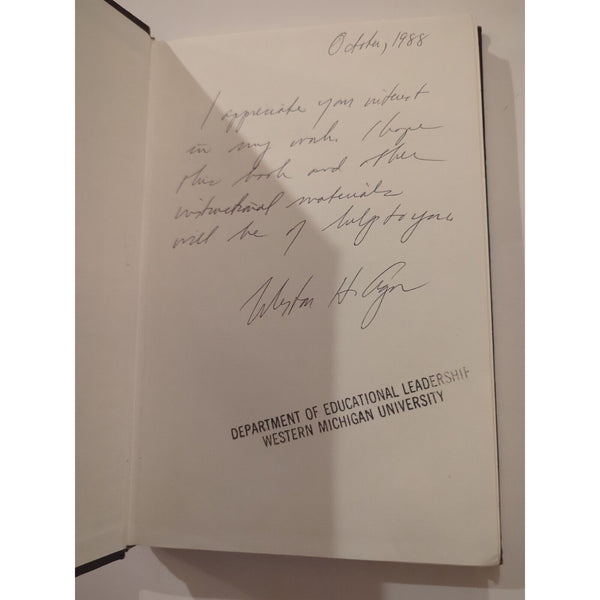 October, 1988
I appreciate your interest
in my work. I hope
this book and other
instructional materials
will be of help to you
Weston H. Agor
DEPARTMENT OF EDUCATIONAL LEADERSHIP
WESTERN MICHIGAN UNIVERSITY